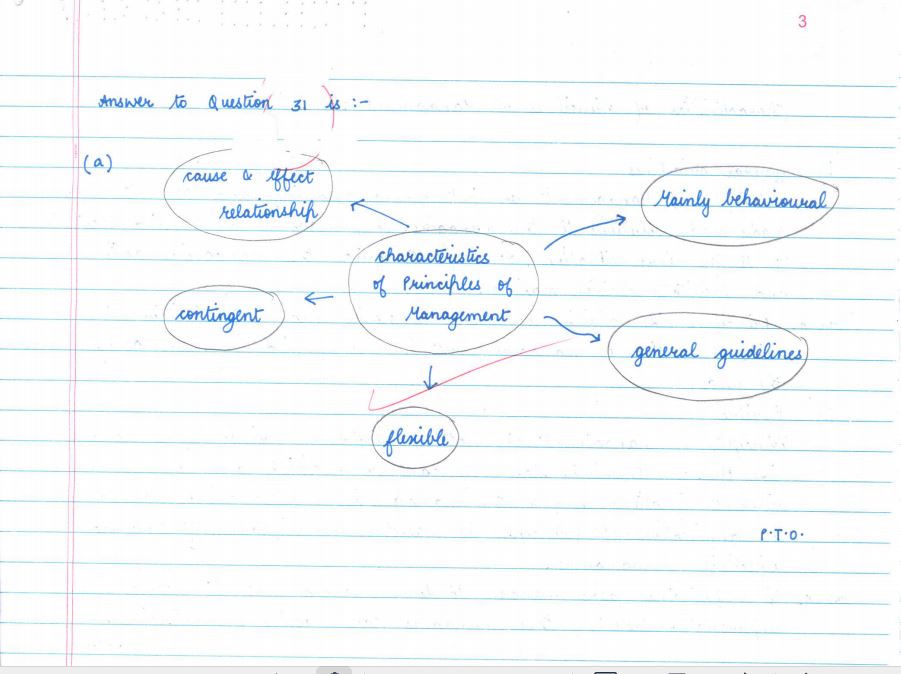 3
Answer to Question 31 is :-
(a)
cause & effect
relationship
Mainly behavioural
characteristics
of Principles of
Management
contingent
general guidelines
flexible
P.T.O.